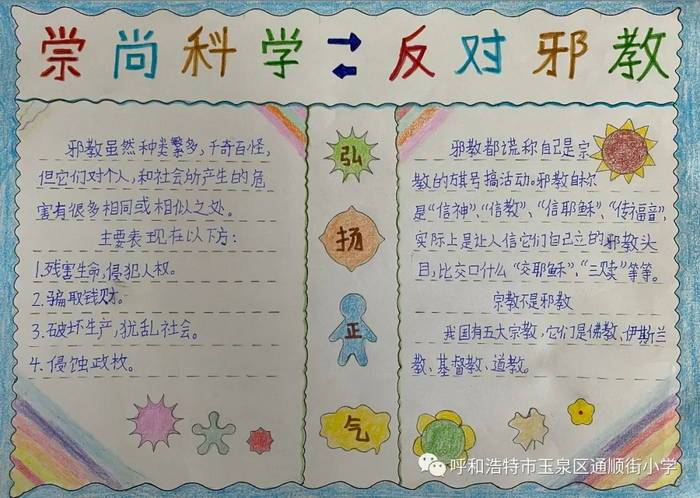 崇尚科学⇄反对邪教
邪教虽然种类繁多，千奇百怪，
但它们对个人，和社会所产生的危
害有很多相同或相似之处。
主要表现在以下方：
1.残害生命，侵犯人权。
2.骗取钱财。
3.破坏生产，扰乱社会。
4.侵蚀政权。
弘
扬
正
气
邪教都谎称自己是宗
教的旗号搞活动。邪教自称
是“信神”、“信教”、“信耶稣”、“传福音”，
实际上是让人信它们自己立的邪教头
目，比交口什么“交耶稣”、“三赎”等等。
宗教不是邪教
我国有五大宗教，它们是佛教、伊斯兰
教、基督教、道教。
呼和浩特市玉泉区通顺街小学